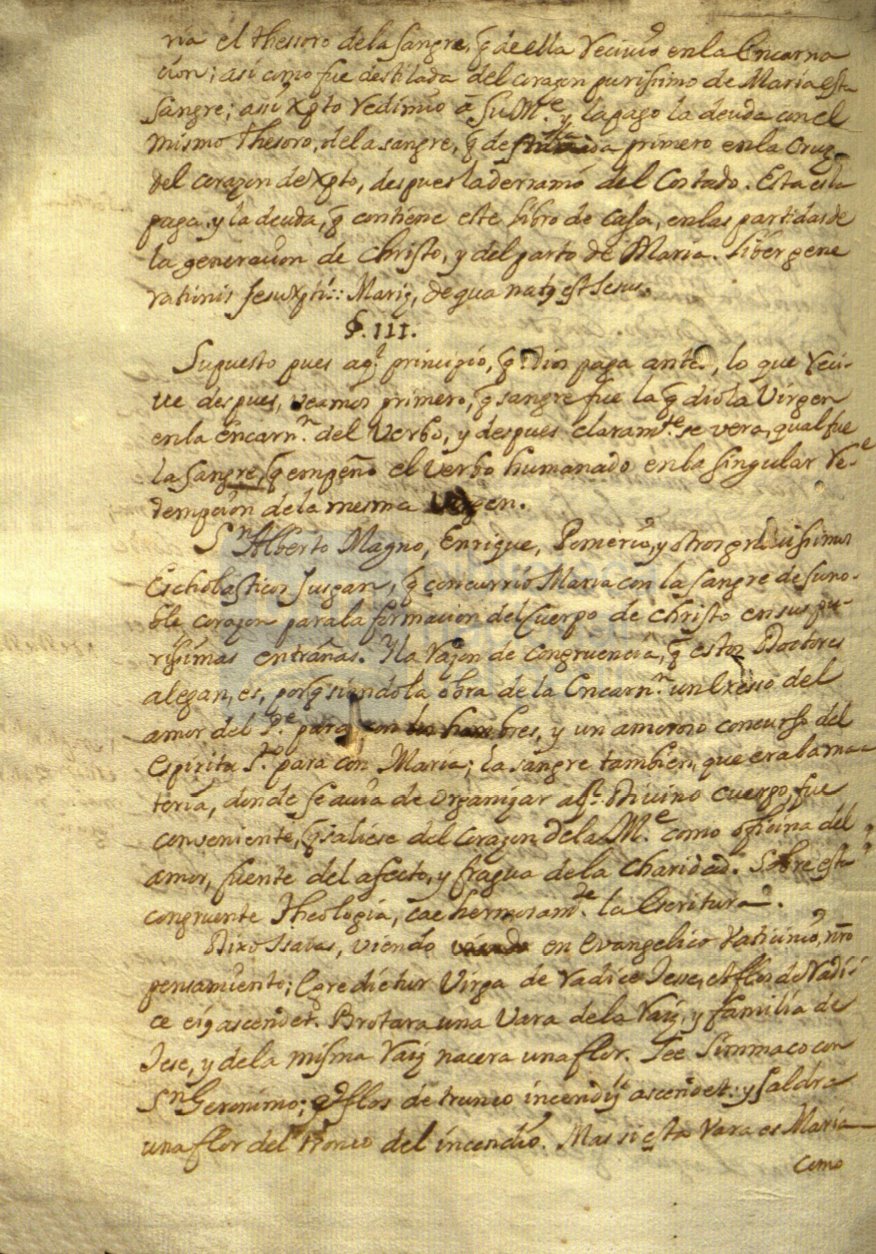 ria el thessoro de la sangre, q̃ de ella recivio en la Encarna
cion; asi como fue destilada del corazon purissimo de Maria esta
sangre; asi Xpto redimio â Su M.e y la pago la deuda con el
mismo thesoro, de la sangre, q̃ primero en la Cruz
del corazon de Xpto, despues la derramò del Costado. Esta es la
paga, y la deuda, q̃ contiene este libro de Casa, en las partidas de
la generacion de Christo, y del parto de Maria. Liber gene
rationis Jesu Xpti:: Mariȩ, de qua natꝰ est Iesus.
§. III.
Supuesto pues aql principio, q̃ Dios paga antes, lo que reci-
ve despues, veamos primero, q̃ sangre fue la q̃ dio la Virgen
en la Encarn.n del Verbo, y despues claram.te se vera, qual fue
la sangre, q̃ empeño el Verbo humanado en la singular Re-
dempcion de la mesma Virgen.
Sn Alberto Magno, Enrique, Pomerio, y otros gravissimos
Escholasticos Jusgan, q̃ concurriò Maria con la sangre de su no-
ble corazon para la formacion del Cuerpo de Christo en sus pu-
rissimas entrañas. Y la razon de congruencia, q̃ estos Doctores
alegan, es, porq̃ siendo la obra de la Encarn.n un exesso del
amor del P.e para con los hombres, y un amoroso concurso del
Espiritu S.to para con Maria; la sangre tambien, que era la ma-
teria, donde se avia de organizar aql Divino cuerpo, fue
conveniente, q̃ saliese del corazon de la M.e como officina del
amor, fuente del afecto, y fragua de la charidad. Sobre esta
congruente theologia, cae hermosam.te la Escritura.
Dixo Isaias, viendo en Evangelico Vaticinio, nro
pensamiento; Egredietur Virga de radice Iese, et flos de radi
ce eiꝰ ascendet. Brotara una Vara de la raiz, y familia de
Iese, y de la misma raiz nacera una flor. Lee Simmaco con
Sn Geronimo; et flos de trunco incendij ascendet: y saldra
una flor del tronco del incendio. Mas si esta Vara es Maria
como